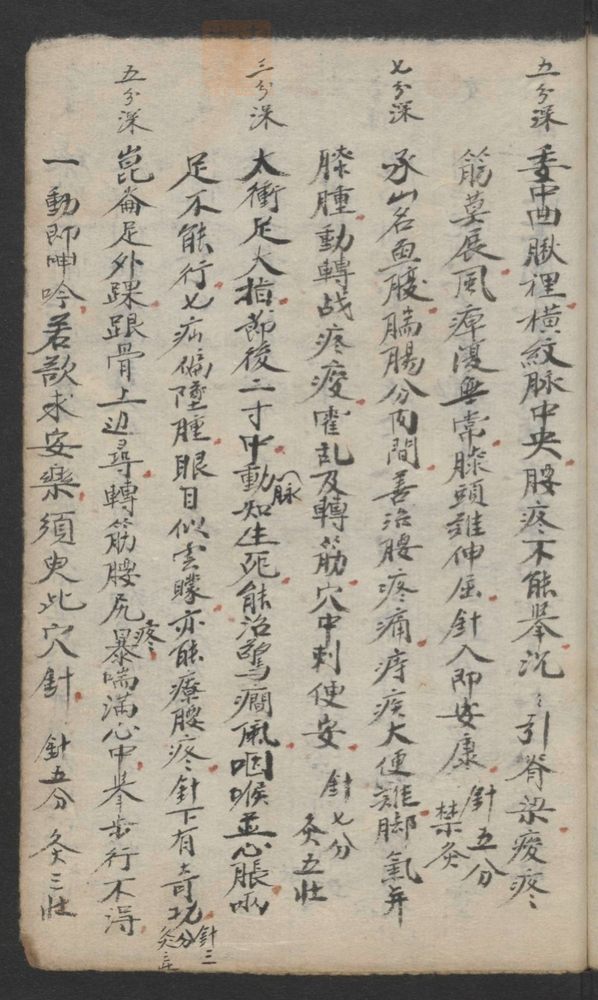 五分深 委中曲脷裡橫紋脉中央腰疼不能舉沉〻引脊梁痠疼
筋莫展風痺復無常膝頭難伸屈針入即安康 針五分 禁灸
七分深 承山名魚腹腨腸分肉間善治腰疼痛痔疾大便難脚氣并
膝腫動轉战疼痠霍乱及轉筋穴中刺便安 針七分 灸五壯
三分深 太衝足大指節後二寸中動脉知生死能治驚癇風咽喉並心脹两
足不能行七疝偏墜腫眼目似雲矇亦能療腰疼針下有奇功 針三分 灸三壯
五分深 崑崙足外踝跟骨上边尋轉筋腰尻疼暴喘満心中舉步行不得
一動即呻吟若欲求安樂須臾此穴針 針五分 灸三壯